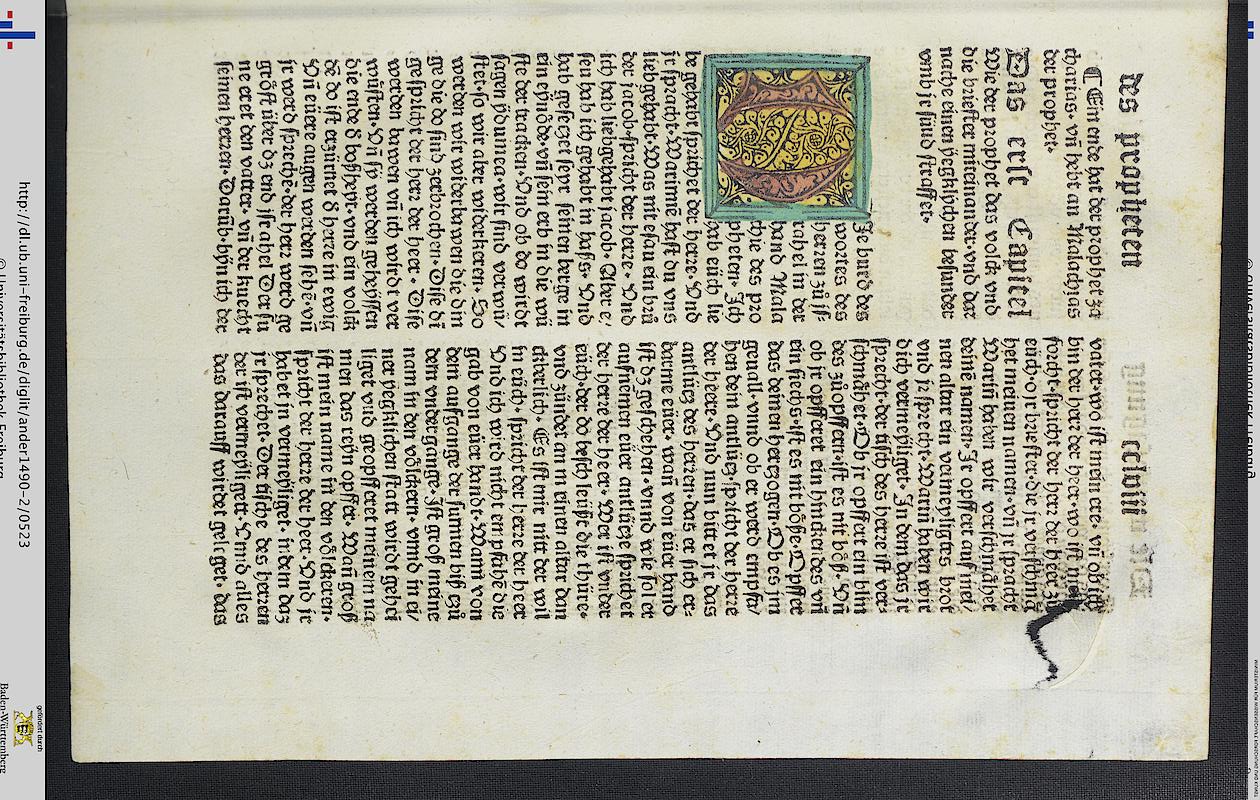 des propheten
cclviii
¶ Ein ende hat der prophet za
charias· vñ hebt an Malachias
der prophet·
Das erst Capitel
Wie der prophet das volck vnd
die briester miteinander· vnd dar
nache einen yegklichen besunder
vnnb jr sünd straffet·
Je bürd des
wortes des
herren zů js-
rahel in der
hand Mala
chie des pro
pheten· Ich
hab eüch lie
be gehabt sprichet der herre· Vnd
jr spracht· Warumē hast du vns
liebgehabt· Was nit esau ein brů
der jacob· spricht der herre· Vnd
ich hab liebgehabt jacob· Aber
sau hab ich gehabt in haß· Vnd
hab geseczt seyr seinen berge in
ein eynöde· vñ sein erb in die wů
ste der tracken· Vnd ob do wirdt
sagen ydumea· wir sind verwü/
stet· so wir aber widerkeren· So
werden wir widerbawen die din
ge die do sind zerbrochen· Dise di
ge spricht der herr der heer· Dise
werden bawen vñ ich wird ver
wüsten· Vñ sy werden geheissen
die ende d̕ boßheyt· vnd ein volck
de do ist erzürnet d̕ herre in ewig
Vñ eüere augen werden sehē· vñ
jr werd sprechē· der herr werd ge
gröst über dz end jsrahel Der su
ne eret den vatter· vñ der knecht
seinen herzen· Darūb· byn ich der
vater· wo ist mein ere· vñ ob ich
bin der herr der heer· wo ist mein
forcht· spricht der herr der heer zů
eüch· o jr briester· die jr verschmä
het meinen namen· vñ jr spracht
Warin haben wir verschmähet
deinē namen· Jr opffert auf mei/
nen altar ein vermeyligtes brot
vnd jr sprecht· Warin haben wir
dich vermeyliget· In dem das jr
sprecht· der tisch des herrē ist ver
schmähet· Ob jr opffert ein blin
des zů opffern· ist es nit böß· Vñ
ob jr opfferet ein hinckendes vñ
ein siechs· ist es nit böße· Opffer
das deinen herczogen· Ob es jm
geuall· vnnd ob er werd empfa/
hen dein antlütz spricht der herre
der heere· Vnd nun bittet jr das
antlütz des herren· das er sich er-
barme eüer· wañ von eüer hand
ist dz geschehen· vnnd wie sol er
aufnemen eüer antlütze sprichet
der herre der heer· Wer ist vnder
eüch· der do beschleüßt die thüre·
vnd zündet an meinen altar dan
ckberlich· Es ist mir nitt der wil
in eüch· spricht der herre der heer
Vnd ich wird nicht enpfahē die
gab von eüer handt· Wann von
dem aufgange der sunnen biß czů
dem vndergange· Ist groß meine
nam in den völckern· vnnd in ei/
ner yegklichen statt wirdt gehei
liget vnd geopfferet meinem na
men das reyn opffer· Wañ groß
ist mein name in den völckeren·
spricht der herre der heer· Vnd jr
habt jn vermeyliget· in dem das
jr sprechet· Der tische des herren
der ist vermeyligett· Vnnd alles
das darauff wirdet gelegt· das
http://dl.ub.uni-freiburg.de/diglit/ander1490-2/0523
© Universitätsbibliothek Freiburg
gefördert durch
Baden-Württemberg